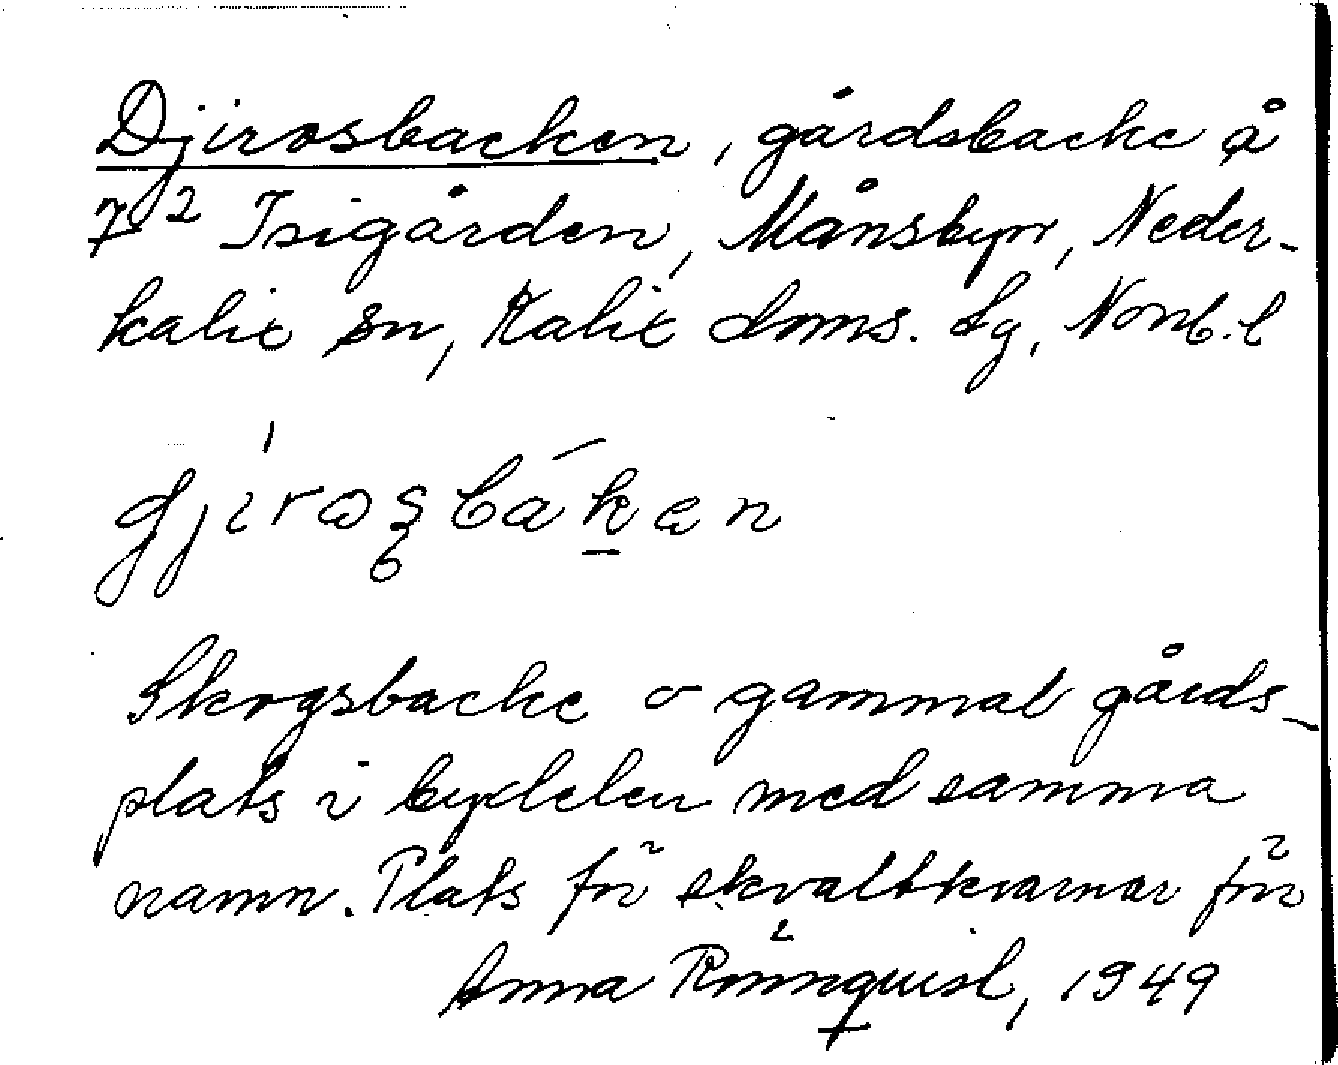 Djirosbacken, gårdsbacke å
7² Isigården, Månsbyn, Neder-
kalix sn, Kalix doms. lg, Norrb. l
djirosbákan
Skogsbacke o gammal gårds-
plats i bydelen med samma
namn. Plats för skvaltkvarnar förr
Anna Rönnquist, 1949